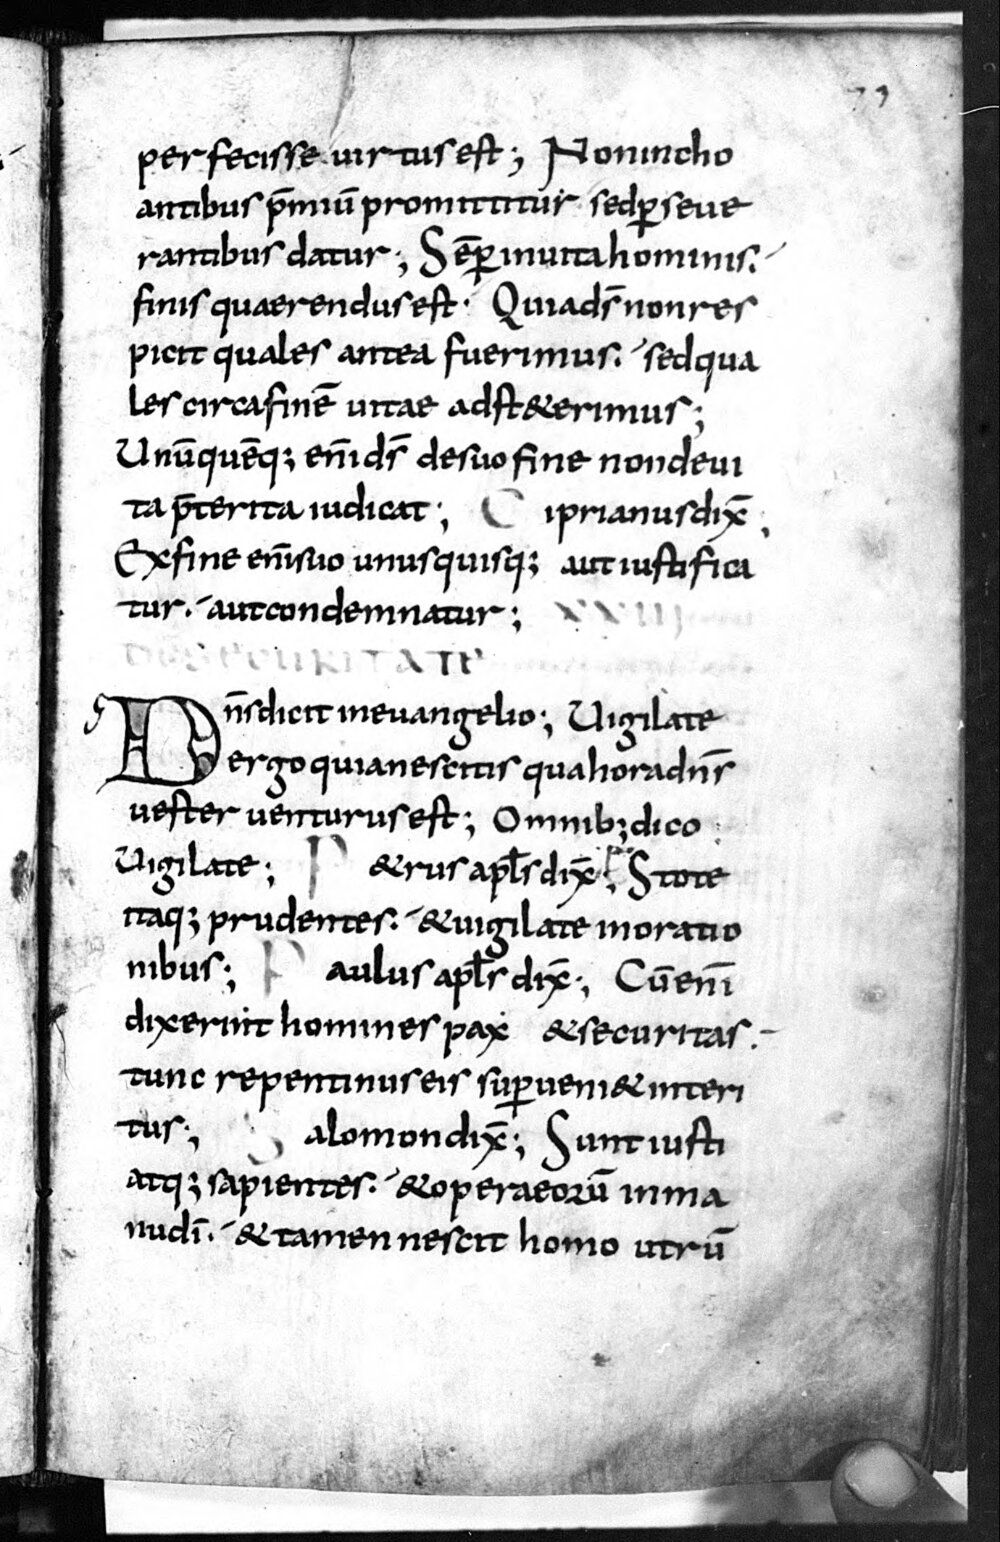 79
perfecisse uirtus est; Non incho
antibus p̄miū promittitur sed ꝑseue
rantibus datur; Sēꝑ in uita hominis.
finis quaerendus est. Quia d̄s non res
picit quales antea fuerimus. sed qua
les circa finē uitae adst&erimus;
Unūquēq; eni̅ d̄s de suo fine non deui
ta p̄terita iudicat; Ciprianus dix̄;
Ex fine eni̅ suo unusquisq; aut iustifica
tur. aut condemnatur; XXIII
DE SECURITATE
Dn̄s dicit in euangelio; Uigilate
ergo quia nescitis qua hora dn̄s
uester uenturus est; Omnib; dico
Uigilate; P&rus apl̄s dix̄; Stote
itaq; prudentes. & uigilate in oratio
nibus; Paulus apl̄s dix̄; Cū eni̅
dixerint homines pax & securitas.
tunc repentinus eis suꝑueni& interi
tus; Salomon dix̄; Sunt iusti
atq; sapientes. & opera eorū in ma
nu di̅. & tamen nescit homo utrū